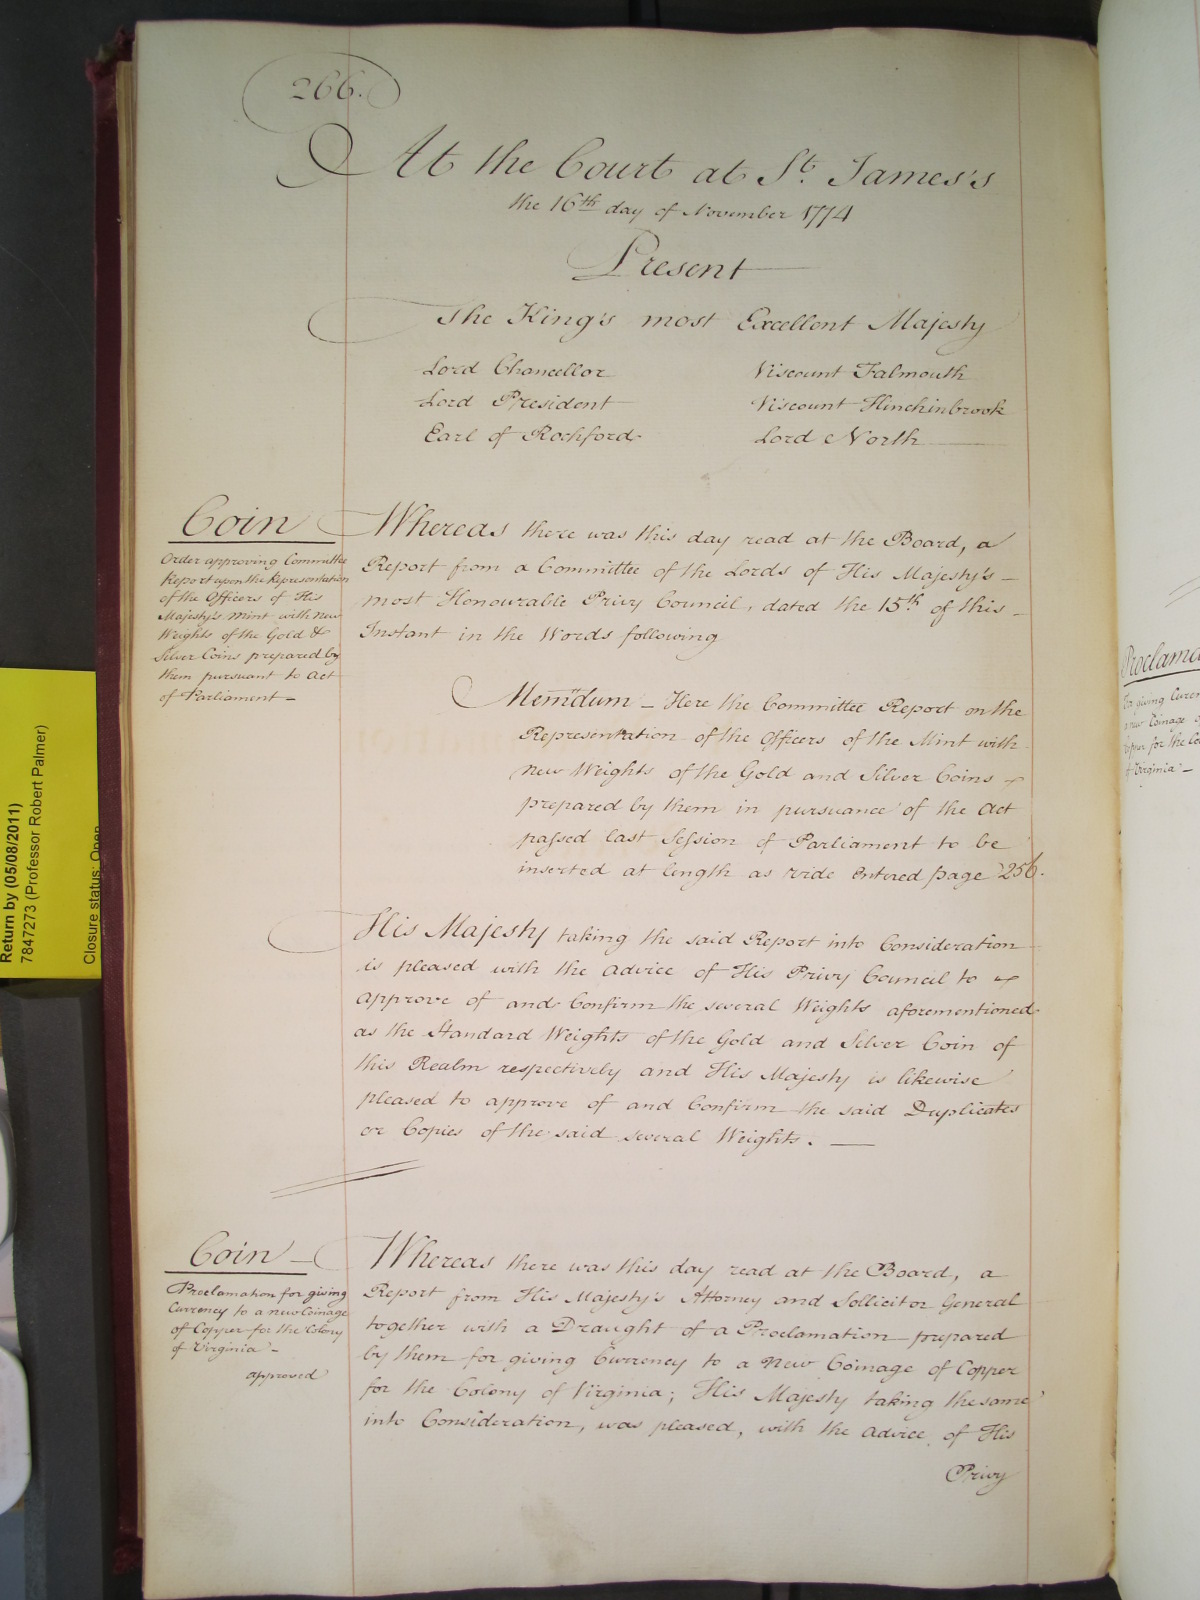 266.
At the Court at St. James's
the 16th day of November 1774
Present
The King's most Excellent Majesty
Lord Chancellor
Lord President
Earl of Rochford
Viscount Falmouth
Viscount Hinchinbrook
Lord North
Coin
Order approving Committee
Report upon the Representation
of the Officers of His
Majesty's Mint with New
Weights of the Gold &
Silver Coins prepared by
them pursuant to Act
of Parliament -
Whereas there was this day read at the Board, a
Report from a Committee of the Lords of His Majesty's
most Honourable Privy Council, dated the 15th of this
Instant in the Words following
Memdum - Here the Committee Report on the
Representation of the Officers of the Mint with
new Weights of the Gold and Silver Coins
prepared by them in pursuance of the Act
passed last Session of Parliament to be
inserted at length as vide Entered page 256.
His Majesty taking the said Report into Consideration
is pleased with the advice of His Privy Council to
approve of and Confirm the several Weights aforementioned
as the Standard Weights of the Gold and Silver Coin of
this Realm respectively and His Majesty is likewise
pleased to approve of and Confirm the said Duplicates
or Copies of the said several Weights. -
Coin -
Proclamation for giving
Currency to a new Coinage
of Copper for the Colony
of Virginia -
approved
Whereas there was this day read at the Board, a
Report from His Majesty's Attorney and Sollicitor General
together with a Draught of a Proclamation prepared
by them for giving Currency to a New Coinage of Copper
for the Colony of Virginia; His Majesty taking the same
into Consideration, was pleased, with the advice of His
Privy
Return by (05/08/2011)
7847273 (Professor Robert Palmer)
Closure status: Open
Proclama
For giving Curren
new Coinage o
Copper for the Co
of Virginia -